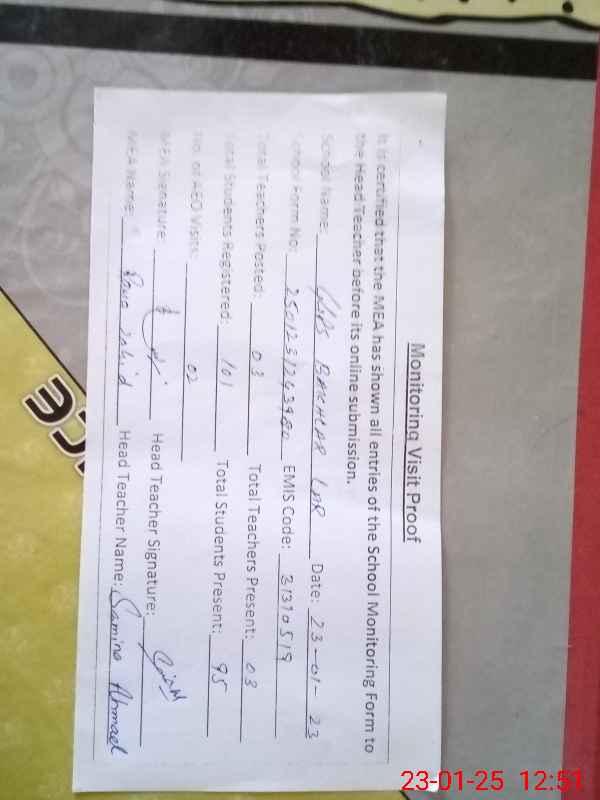 Monitoring Visit Proof
It is certified that the MEA has shown all entries of the School Monitoring Form to
the Head Teacher before its online submission.
School Name: GGPS BAKHAR LAR Date: 23-01-23
School Form No: 2501231243980 EMIS Code: 31310519
Total Teachers Posted: 03 Total Teachers Present: 03
Total Students Registered: 101 Total Students Present: 95
No. of AEO Visits: 02
MEA Signature: Head Teacher Signature:
MEA Name: Rana Zahid Head Teacher Name: Samina Ahmad
23-01-25 12:51